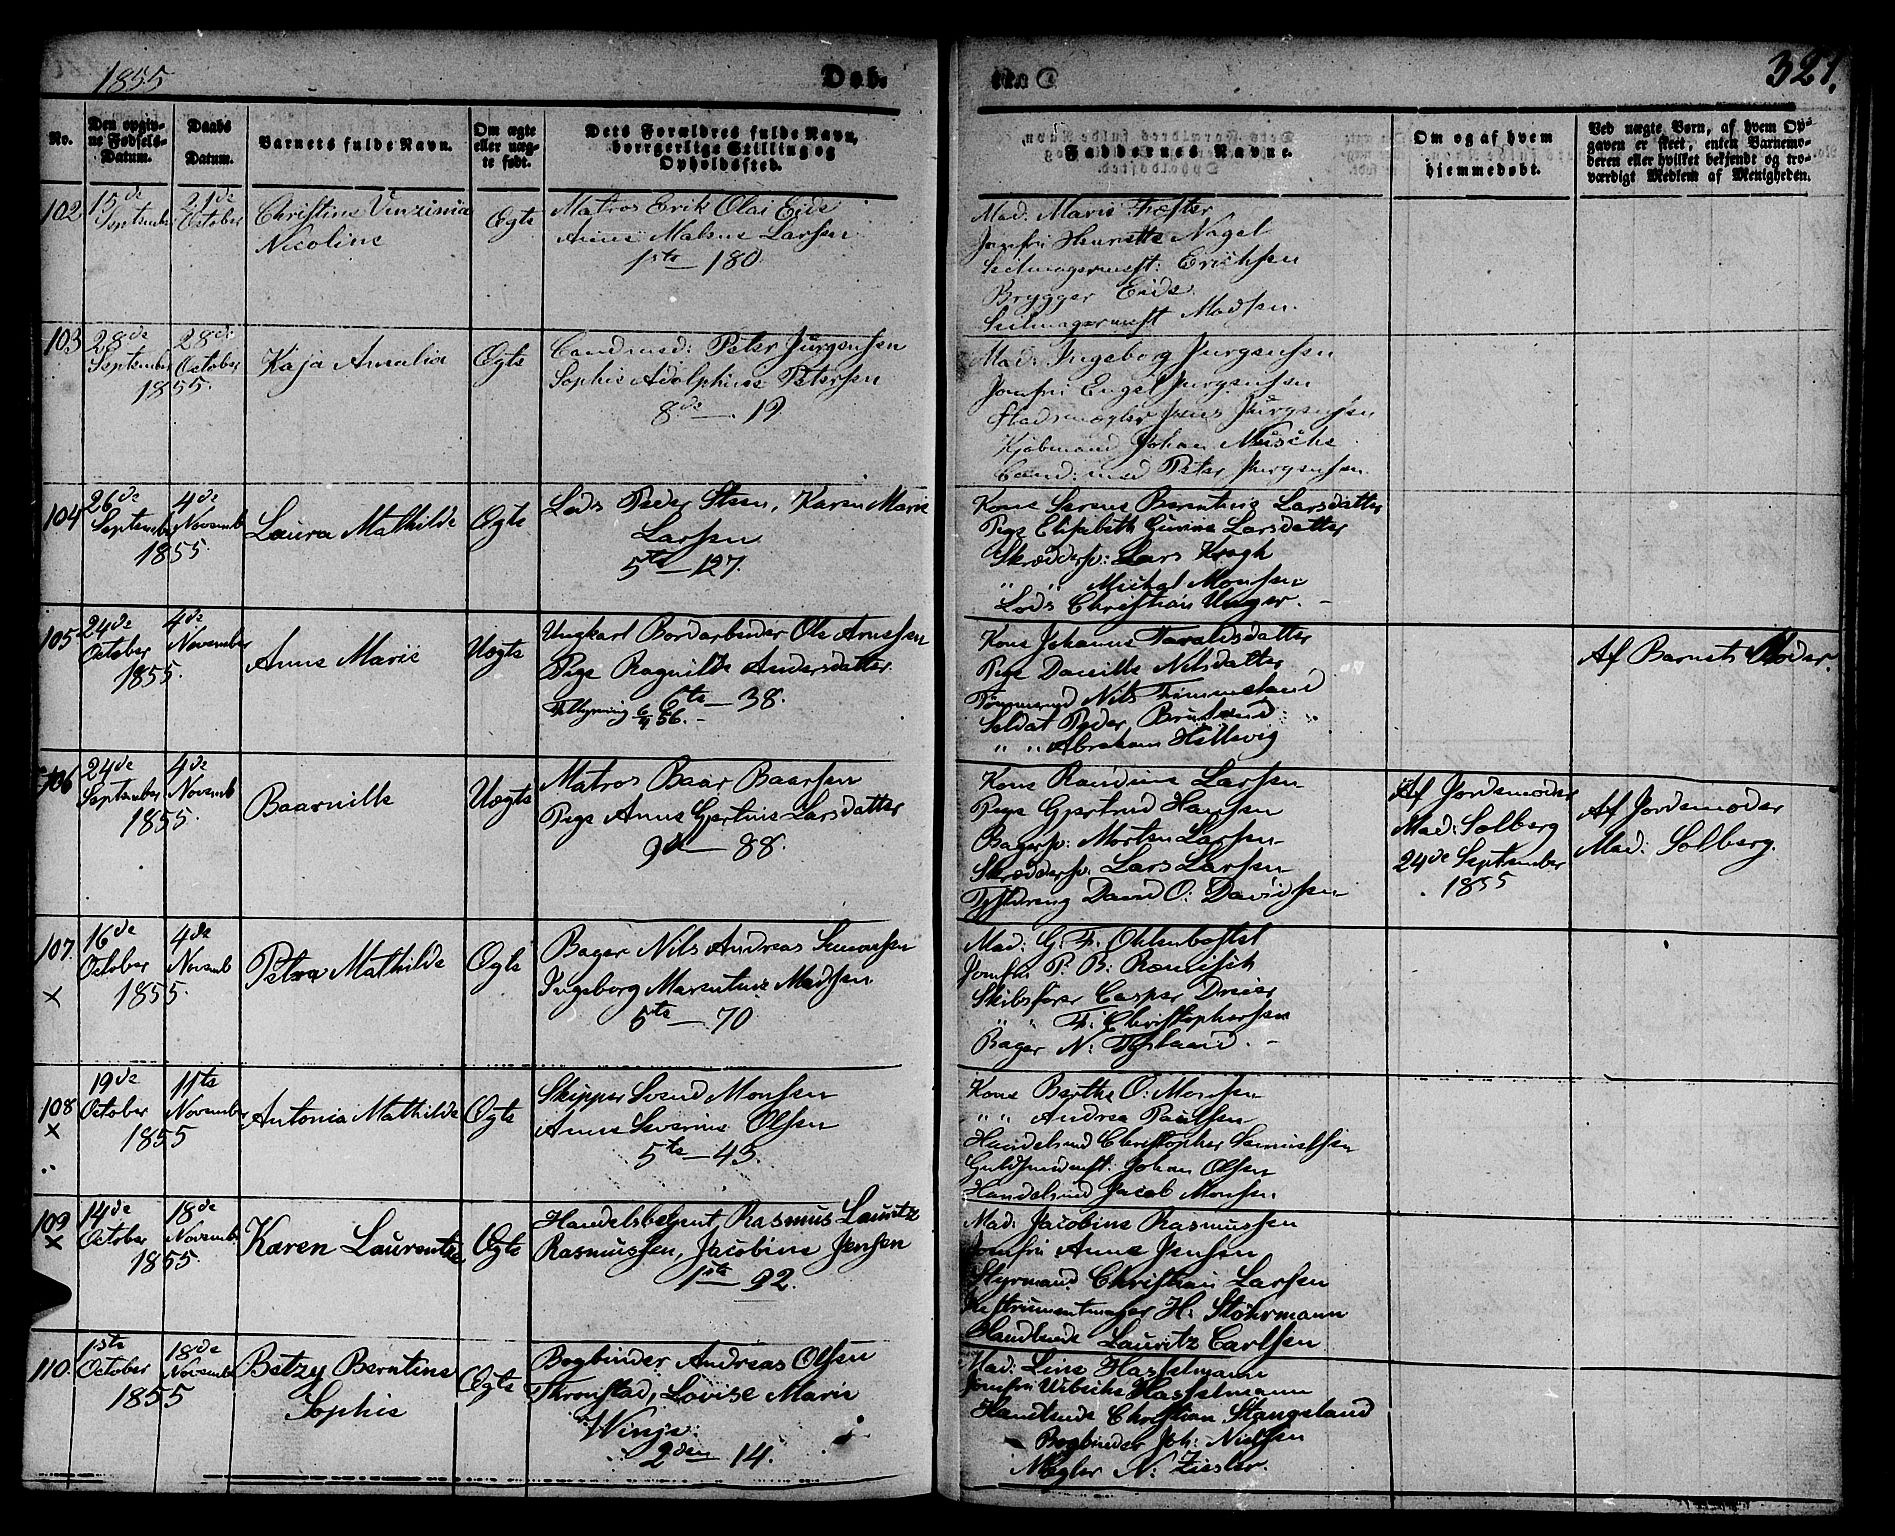 1855
Døb.
321.
No.
Den opgiv-
ne Fødsels-
Datum.
Daabs
Datum.
Barnets fulde Navn.
Om ægte
eller uæg-
te født.
Dets Forældres fulde Navn,
borgerlige Stilling og
Opholdssted.
Faddernes Navne.
Om og af hvem
hjemmedøbt.
Ved uægte Børn, af hvem Op-
gaven er skeet, enten Barnemo-
deren eller hvilket bekjendt og tro-
værdigt Medlem af Menigheden.
102
15de
September
21de
October
Christine Vinzinia
Nicoline
Ægte
Matros Erik Olai Eide
Anne Malene Larsen
1ste — 180.
Mad: Marie Træster
Jomfru Henriette Nagel
Seilmagermest: Erichsen
Brygger Eide
Seilmagermest Madsen.
103
28de
September
28de
October
1855.
Kaja Amalia
Ægte
Candmed: Peter Jürgensen
Sophie Adolphine Petersen
8de — 19.
Mad: Ingeborg Jürgensen
Jomfru Engel Jürgensen
Stadsmægler Jens Jürgensen
Kjøbmand Johan
Cand: med Peter Jürgensen.
104
26de
September
4de
Novemb
1855.
Laura Mathilde
Ægte
Lods Peder Steen, Karen Marie
Larsen
5te — 127.
Kone Serene Berentine Larsdatter
Pige Elisabeth Gurine Larsdatter
Skræddersv: Lars Krogh
" " Michel Monsen
Lods Christian Unger. –
105
24de
October
4de
November
1855.
Anne Marie
Uægte
Ungkarl Bordarbeider Ole Arnesen
Pige Ragnilde Andersdatter
6te — 38.
6/9 56. –
Kone Johanne Taraldsdatter
Pige Danille Nilsdatter
Tømmermd Nils Timmeland
Soldat Peder
" " Abraham Hillevig
Af Barnets Moder.
106
24de
September
4de
Novemb
1855.
Baarnille
Uægte
Matros Baar Baarsen
Pige Anne Gjertine Larsdatter
9de — 88.
Kone Randine Larsen
Pige Gjertrud Hansen
Bagersv: Morten Larsen
Skræddersv. Lars Larsen
David O: Davidsen
Af Jordemoder
Mad: Solberg
24de September
1855
Af Jordemoder
Mad: Solberg.
107.
×
16de
October
4de
Novemb
1855.
Petra Mathilde
Ægte
Bager Nils Andreas Simonsen
Ingeborg Marentine Madsen
5te — 70.
Mad: G. F. Ohlenbostel
Jomfru P. B. Roemisch
Skibsfører Casper Dreier
" " F: Christophersen
Bager N: Tysland. –
108
×
19de
October
11te
November
1855
Antonia Mathilde
Ægte
Skipper Svend Monsen
Anne Severine Olsen
5te — 43.
Kone Berthe O: Monsen
" " Andrea Paulsen
Handelsmd Christopher Samuelsen
Guldsmedmst: Johan Olsen
Handelsmd Jacob Monsen
109
×
14de
October
18de
Novemb
1855.
Karen Laurentse
Ægte
Handelsbetjent, Rasmus Lauritz
Rasmussen, Jacobine Jensen
1ste — 92.
Mad: Jacobine Rasmussen
Jomfru Anne Jensen
Styrmand Christian Larsen
Instrumentmager H: Støhrmann
Handlende Lauritz Carlsen
110.
1ste
October
18de
Novemb
1855
Betzy Berntine
Sophie
Ægte
Bogbinder Andreas Olsen
Thronstad, Lovise Marie
Winje.
2den — 14.
Mad: Line Hasselmann
Jomfru Wibicke Hasselmann
Handlende Christian Stangeland
Bogbinder Joh: Nielsen
Mægler N: Ziesler.